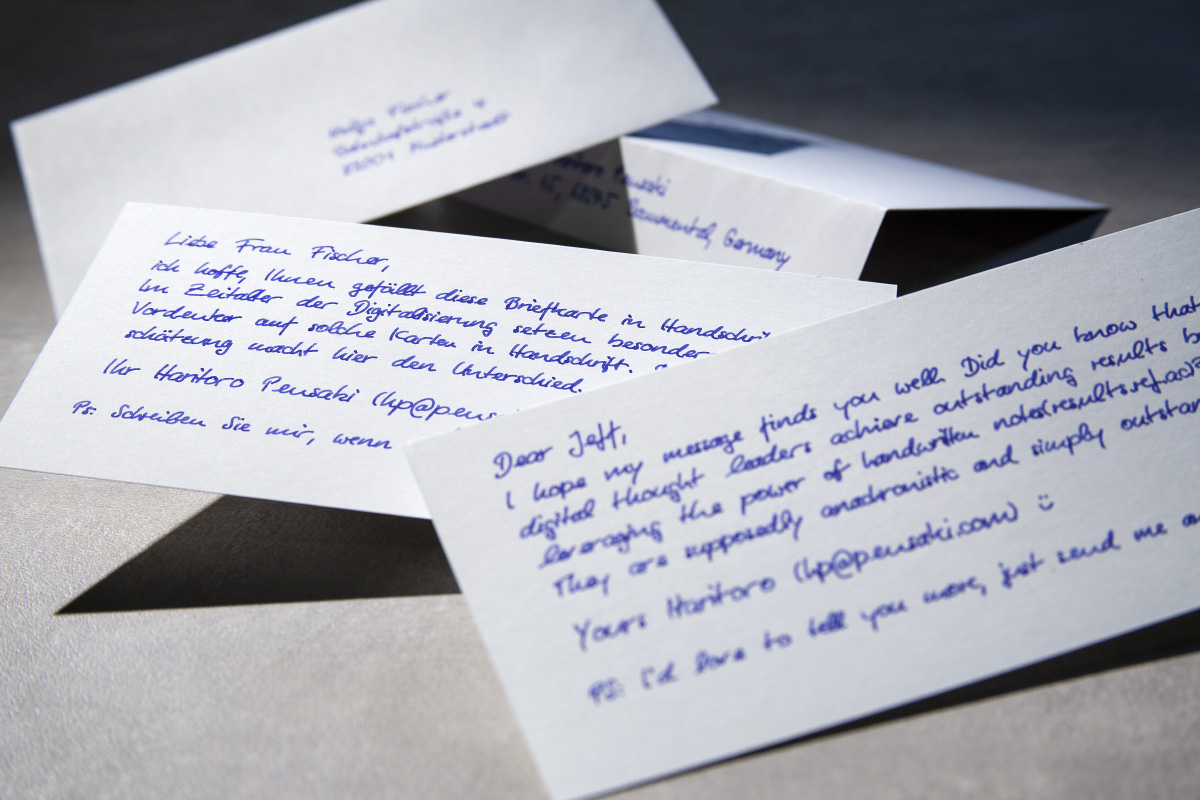 Helga Fischer
Bahnhofstraße 4
Musterstadt
Pensaki
Germany
Liebe Frau Fischer,
ich hoffe, Ihnen gefällt diese Briefkarte in Handschri
Im Zeitalter der Digitalisierung setzen besonder
Vordenker auf solche Karten in Handschrift.
schätzung macht hier den Unterschied.
Ihr Haritoro Pensaki (hp@pens
Ps: Schreiben Sie mir, wenn
Dear Jeff,
I hope my message finds you well. Did you know that
digital thought leaders achieve outstanding results b
leveraging the power of handwritten notes(results.ref.ac)?
They are supposedly anachronistic and simply outstan
Yours Haritoro (hp@pensaki.com) :)
PS: I'd love to tell you more, just send me a